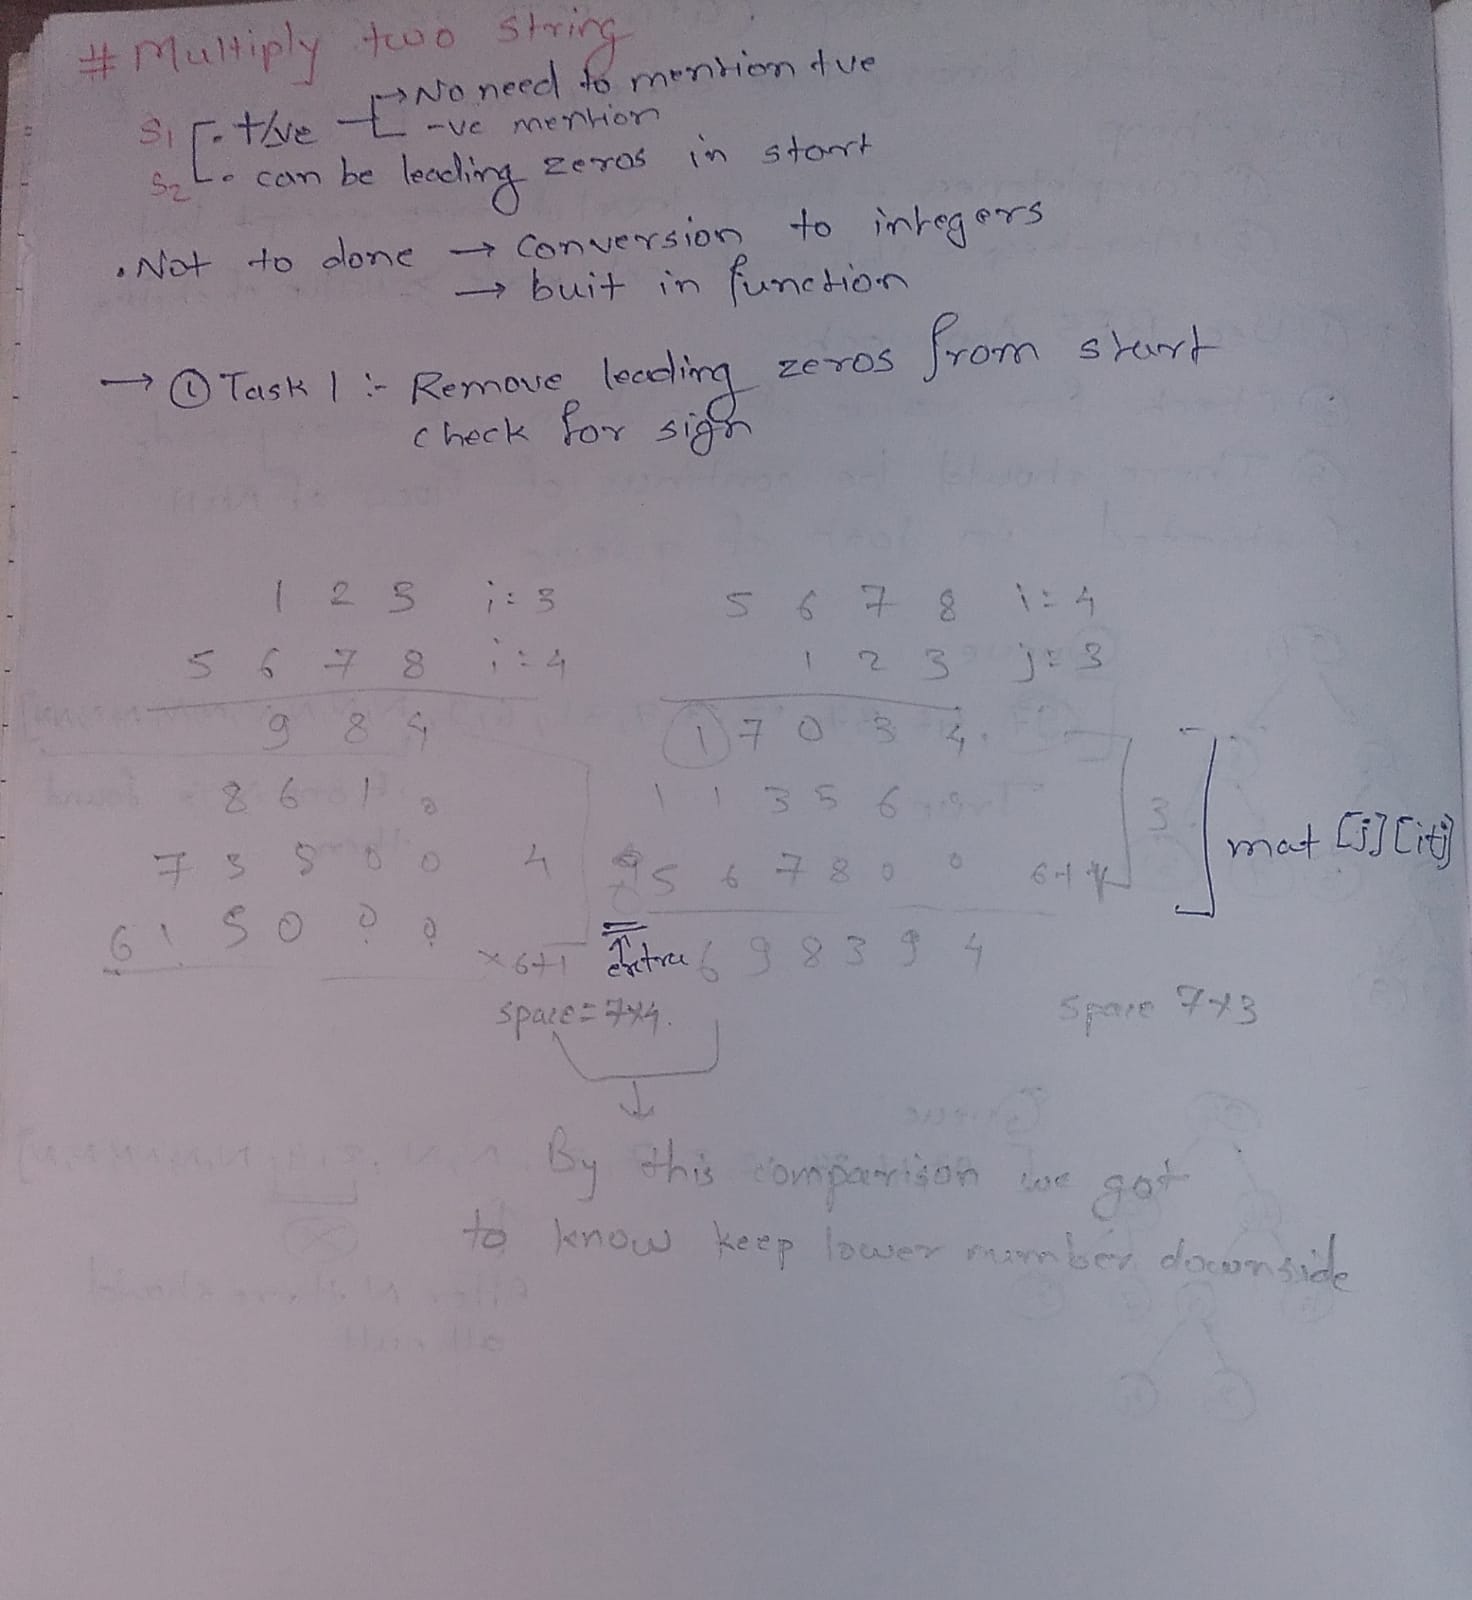 # Multiply two string
→ No need to mention +ve
S1 • +/-ve -ve mention
S2 • can be leading zeros in start
• Not to done → conversion to integers
→ buit in function
→ ① Task 1 :- Remove leading zeros from start
check for sign
1 2 3 i=3
5 6 7 8 i=4
9 8 4
8 6 1 0
7 3 8 0 0 4
6 1 5 0 0 0
×6+1
space = 7×4.
5 6 7 8 i=4
1 2 3 j=3
1 7 0 3 4
1 1 3 5 6 0
5 6 7 8 0 0 6+1
3
mat [j][i+j]
extra 6 9 8 3 9 4
space 7×3
By this comparison we got
to know keep lower number downside